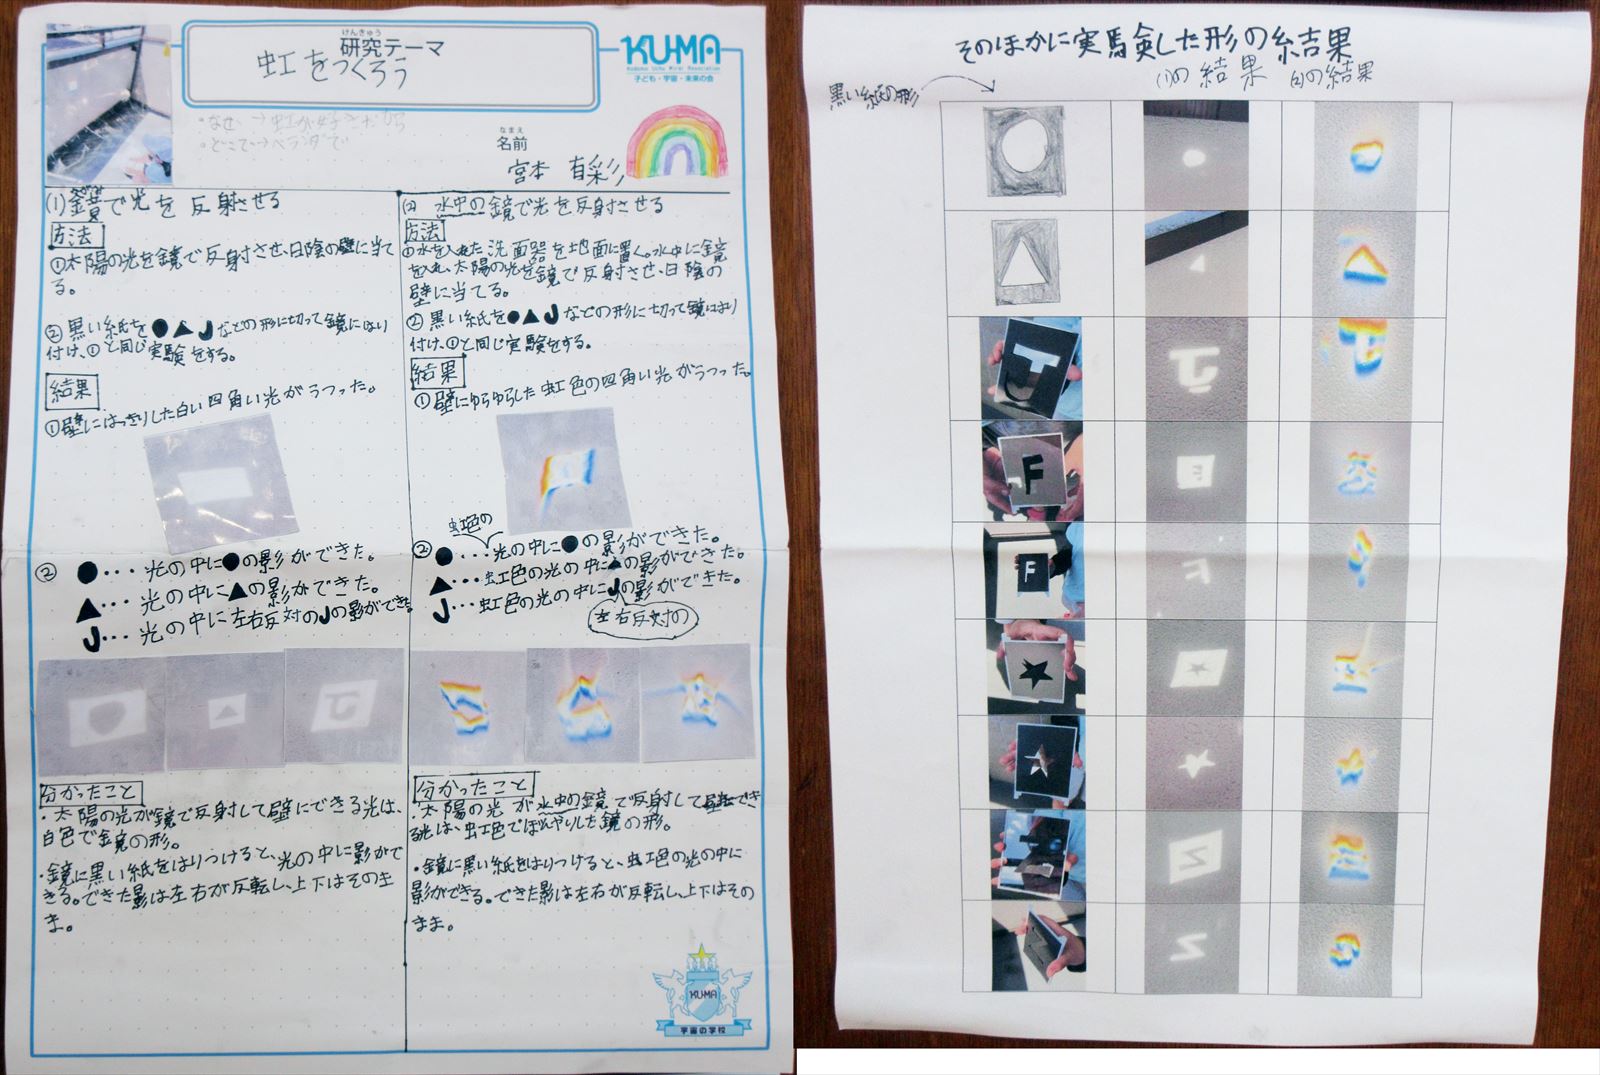 けんきゅう
研究テーマ
虹をつくろう
KU-MA
Kodomo Uchu Mirai Association
子ども・宇宙・未来の会
・なぜ→虹が好きだから
・どこで→ベランダで
なまえ
名前
宮本 有彩
(1)鏡で光を反射させる
方法
①太陽の光を鏡で反射させ、日陰の壁に当て
る。
②黒い紙を●▲Jなどの形に切って鏡にはり
付け、①と同じ実験をする。
結果
①壁にはっきりした白い四角い光がうつった。
② ●･･･光の中に●の影ができた。
▲･･･光の中に▲の影ができた。
J･･･光の中に左右反対のJの影ができた。
分かったこと
・太陽の光が鏡で反射して壁にできる光は、
白色で鏡の形。
・鏡に黒い紙をはりつけると、光の中に影がで
きる。できた影は左右が反転し、上下はそのま
ま。
(2) 水中の鏡で光を反射させる
方法
①水を入れた洗面器を地面に置く。水中に鏡
を入れ、太陽の光を鏡で反射させ、日陰の
壁に当てる。
②黒い紙を●▲Jなどの形に切って鏡にはり
付け、①と同じ実験をする。
結果
①壁にゆらゆらした虹色の四角い光がうつった。
虹色の
② ●･･･光の中に●の影ができた。
▲･･･虹色の光の中に▲の影ができた。
J･･･虹色の光の中にJの影ができた。
左右反対の
分かったこと
・太陽の光が水中の鏡で反射して壁にでき
る光は、虹色でぼんやりした鏡の形。
・鏡に黒い紙をはりつけると、虹色の光の中に
影ができる。できた影は左右が反転し、上下はその
まま。
KU-MA
宇宙の学校
そのほかに実験した形の結果
黒い紙の形
(1)の結果
(2)の結果
J
F
F